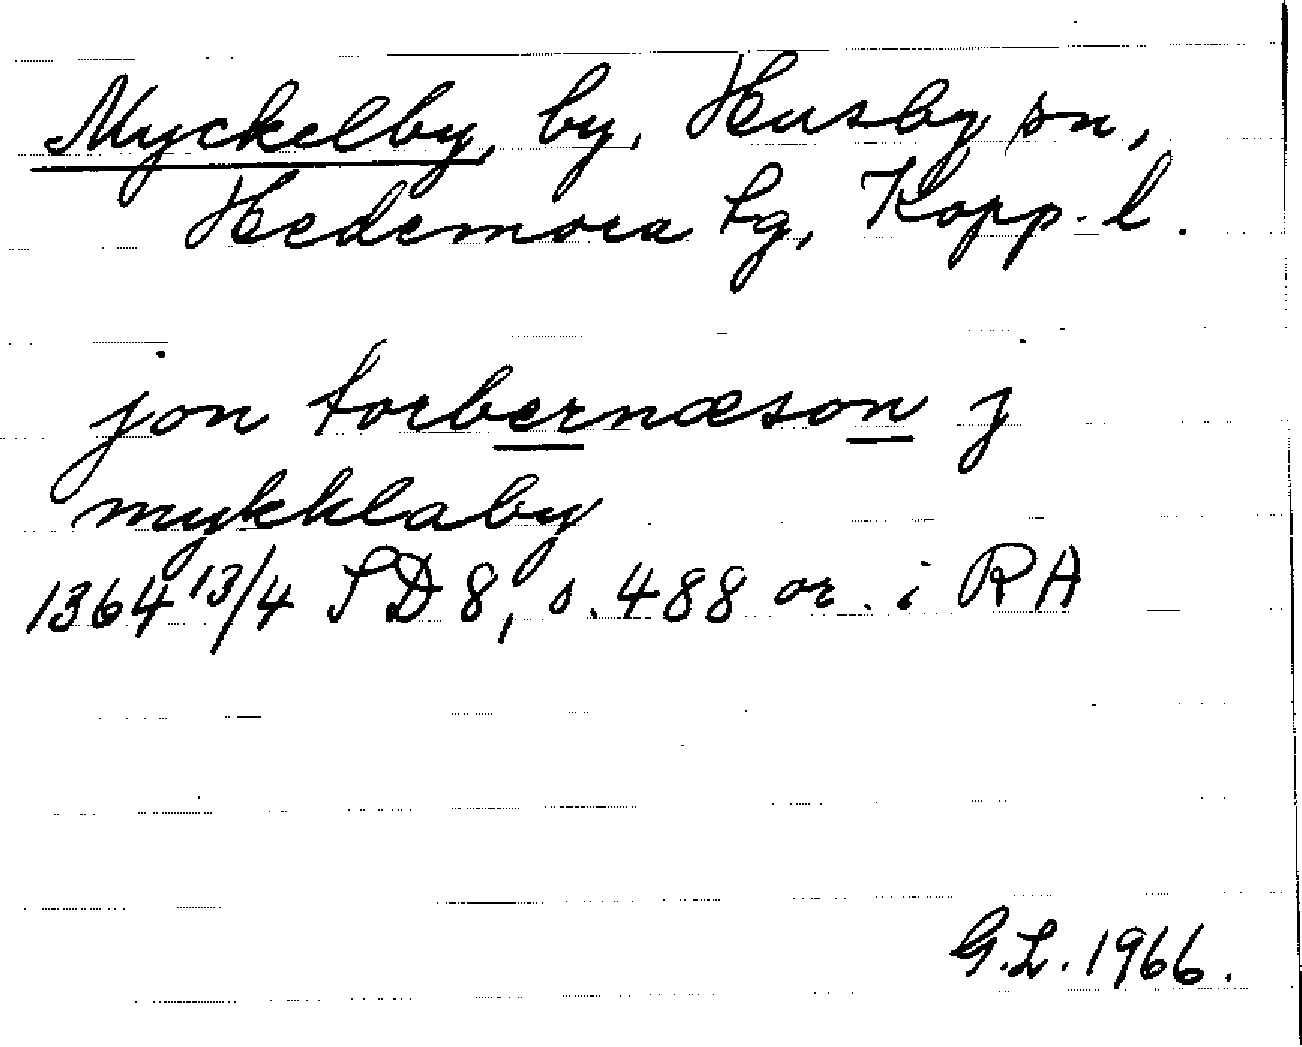 Myckelby, by, Husby sn,
Hedemora tg, Kopp. l.
jon torbernæson j
mykklaby
1364 13/4 SD 8, s. 488 or. i RA
G.L. 1966.